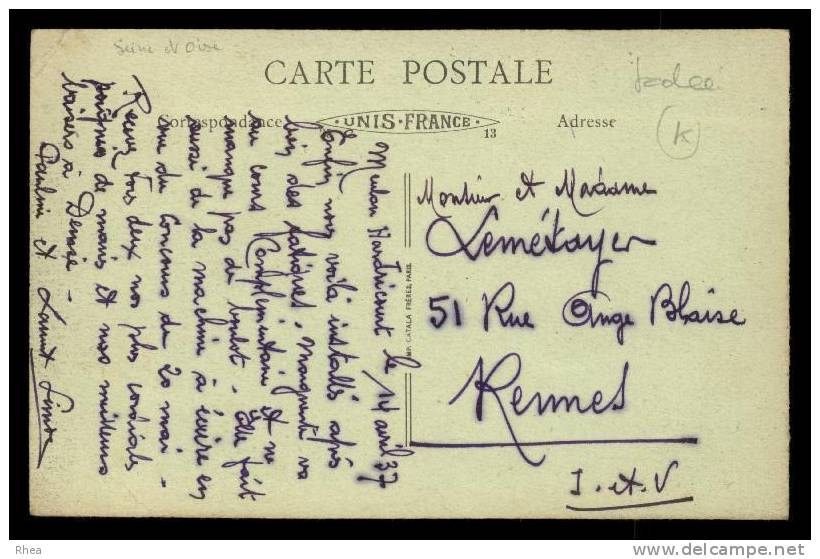 Seine et Oise
CARTE POSTALE
Correspondance
UNIS-FRANCE
13
Adresse
K
Meulan Hardricourt le 14 avril 37
Enfin nous voilà installés après
bien des fatigues. Marguerite va
au cours Complémentaire et ne
manque pas de boulot. Elle fait
aussi de la machine à écrire en
vue du Concours du 20 mai -
Recevez tous deux nos plus cordiales
poignées de mains et nos meilleurs
baisers à Denise -
Pauline et
IMP. CATALA FRÈRES, PARIS
Monsieur et Madame
Lemétayer
51 Rue Ange Blaise
Rennes
I-et-V
Rhea
http://www.delcampe.net